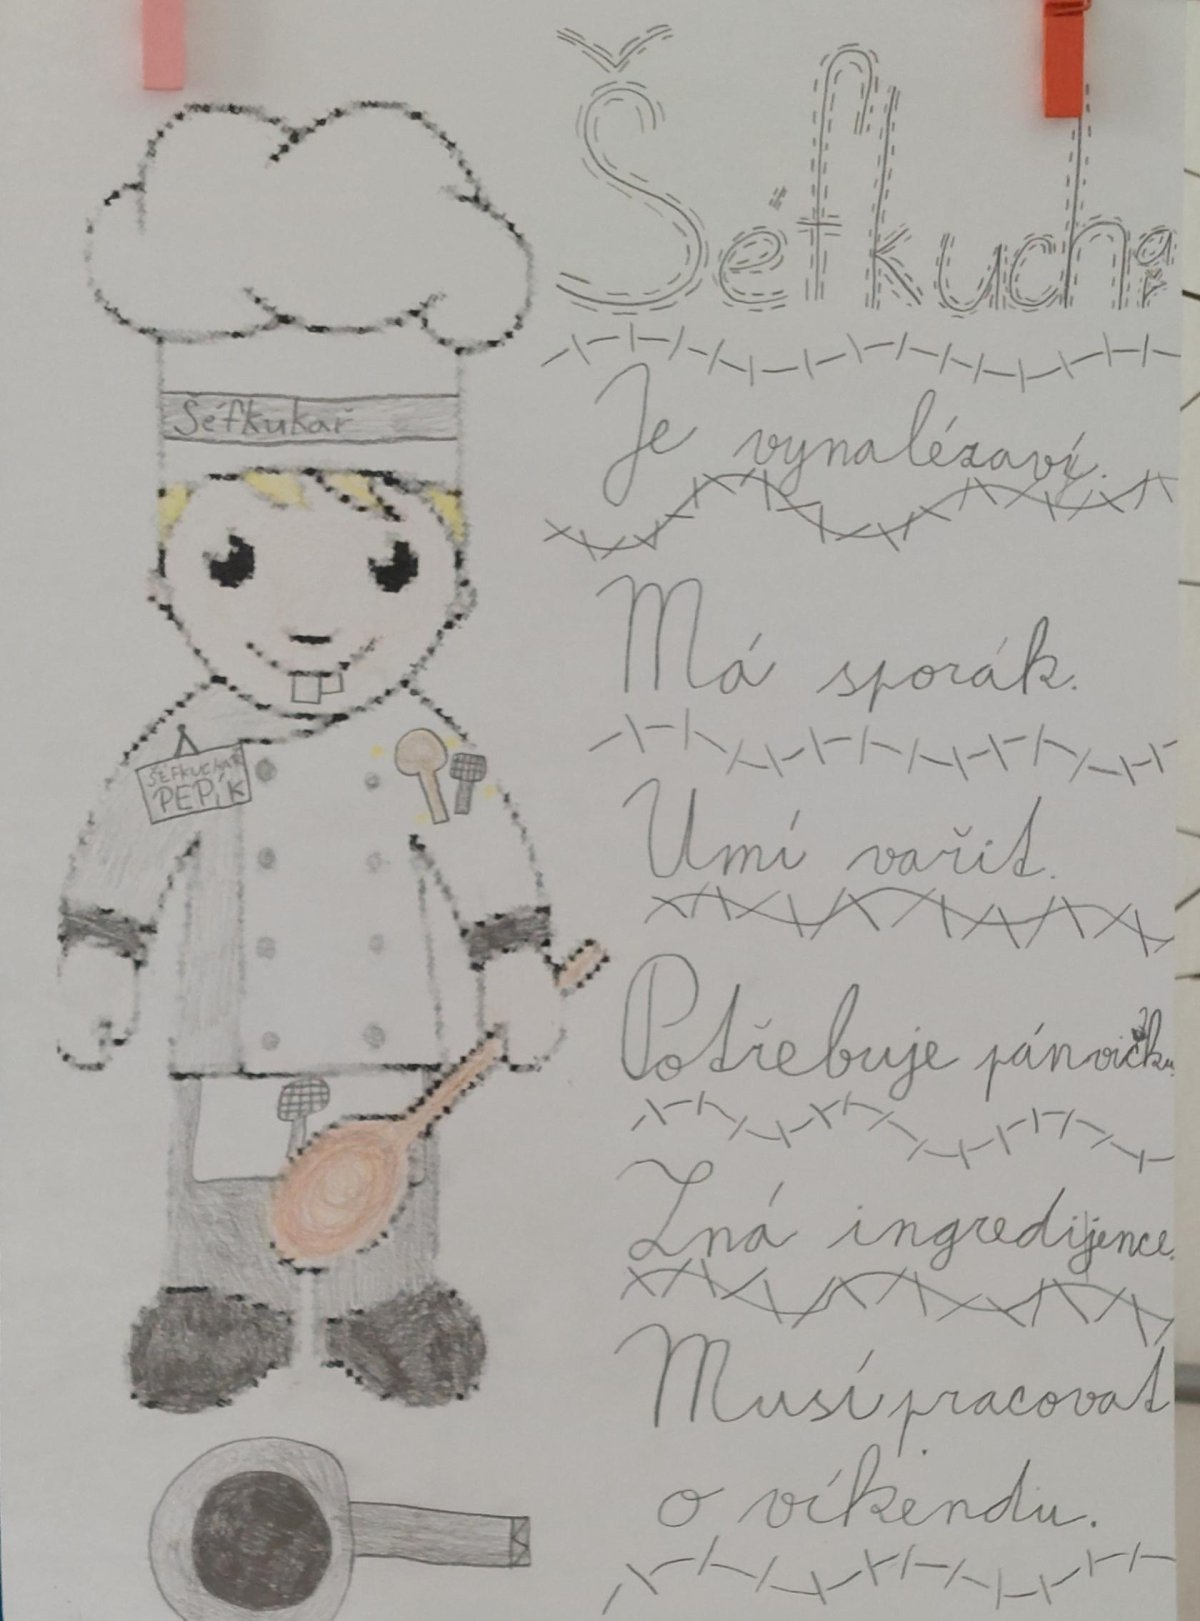 Šéfkuchař
Šéfkukař
Je vynalézavý.
Má sporák.
ŠÉFKUCHAŘ
PEPÍK
Umí vařit.
Potřebuje pánvičku.
Zná ingredijence.
Musí pracovat
o víkendu.